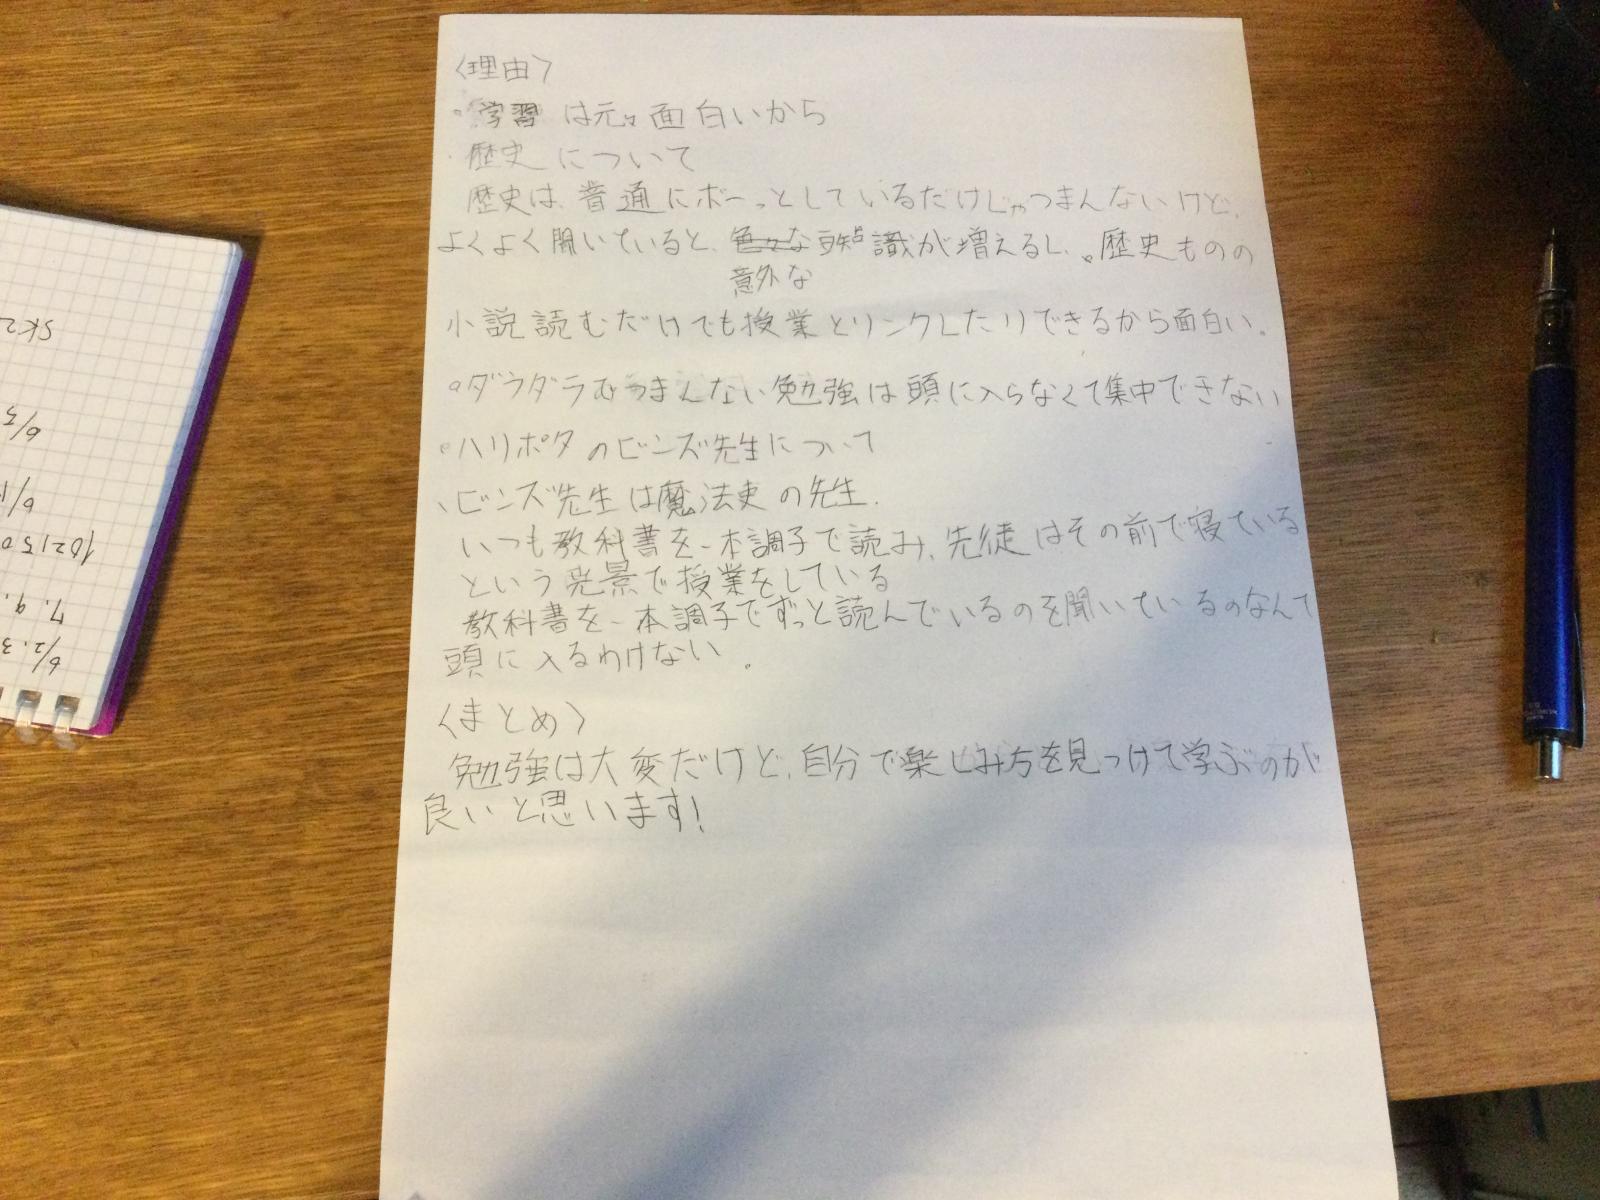 〈理由〉
・学習は元々面白いから
・歴史について
歴史は、普通にボーっとしているだけじゃつまんないけど、
よくよく聞いていると、色々な知識が増えるし、歴史ものの
意外な
小説読むだけでも授業とリンクしたりできるから面白い。
・ダラダラつまんない勉強は頭に入らなくて集中できない
・ハリポタのビンズ先生について
、ビンズ先生は魔法史の先生.
いつも教科書を一本調子で読み、先徒はその前で寝ている
という光景で授業をしている
教科書を一本調子でずっと読んでいるのを聞いているのなんて
頭に入るわけない。
〈まとめ〉
勉強は大変だけど、自分で楽しみ方を見つけて学ぶのが
良いと思います!
6/2.3
7.9.
102150
6/1
6/5
SK2